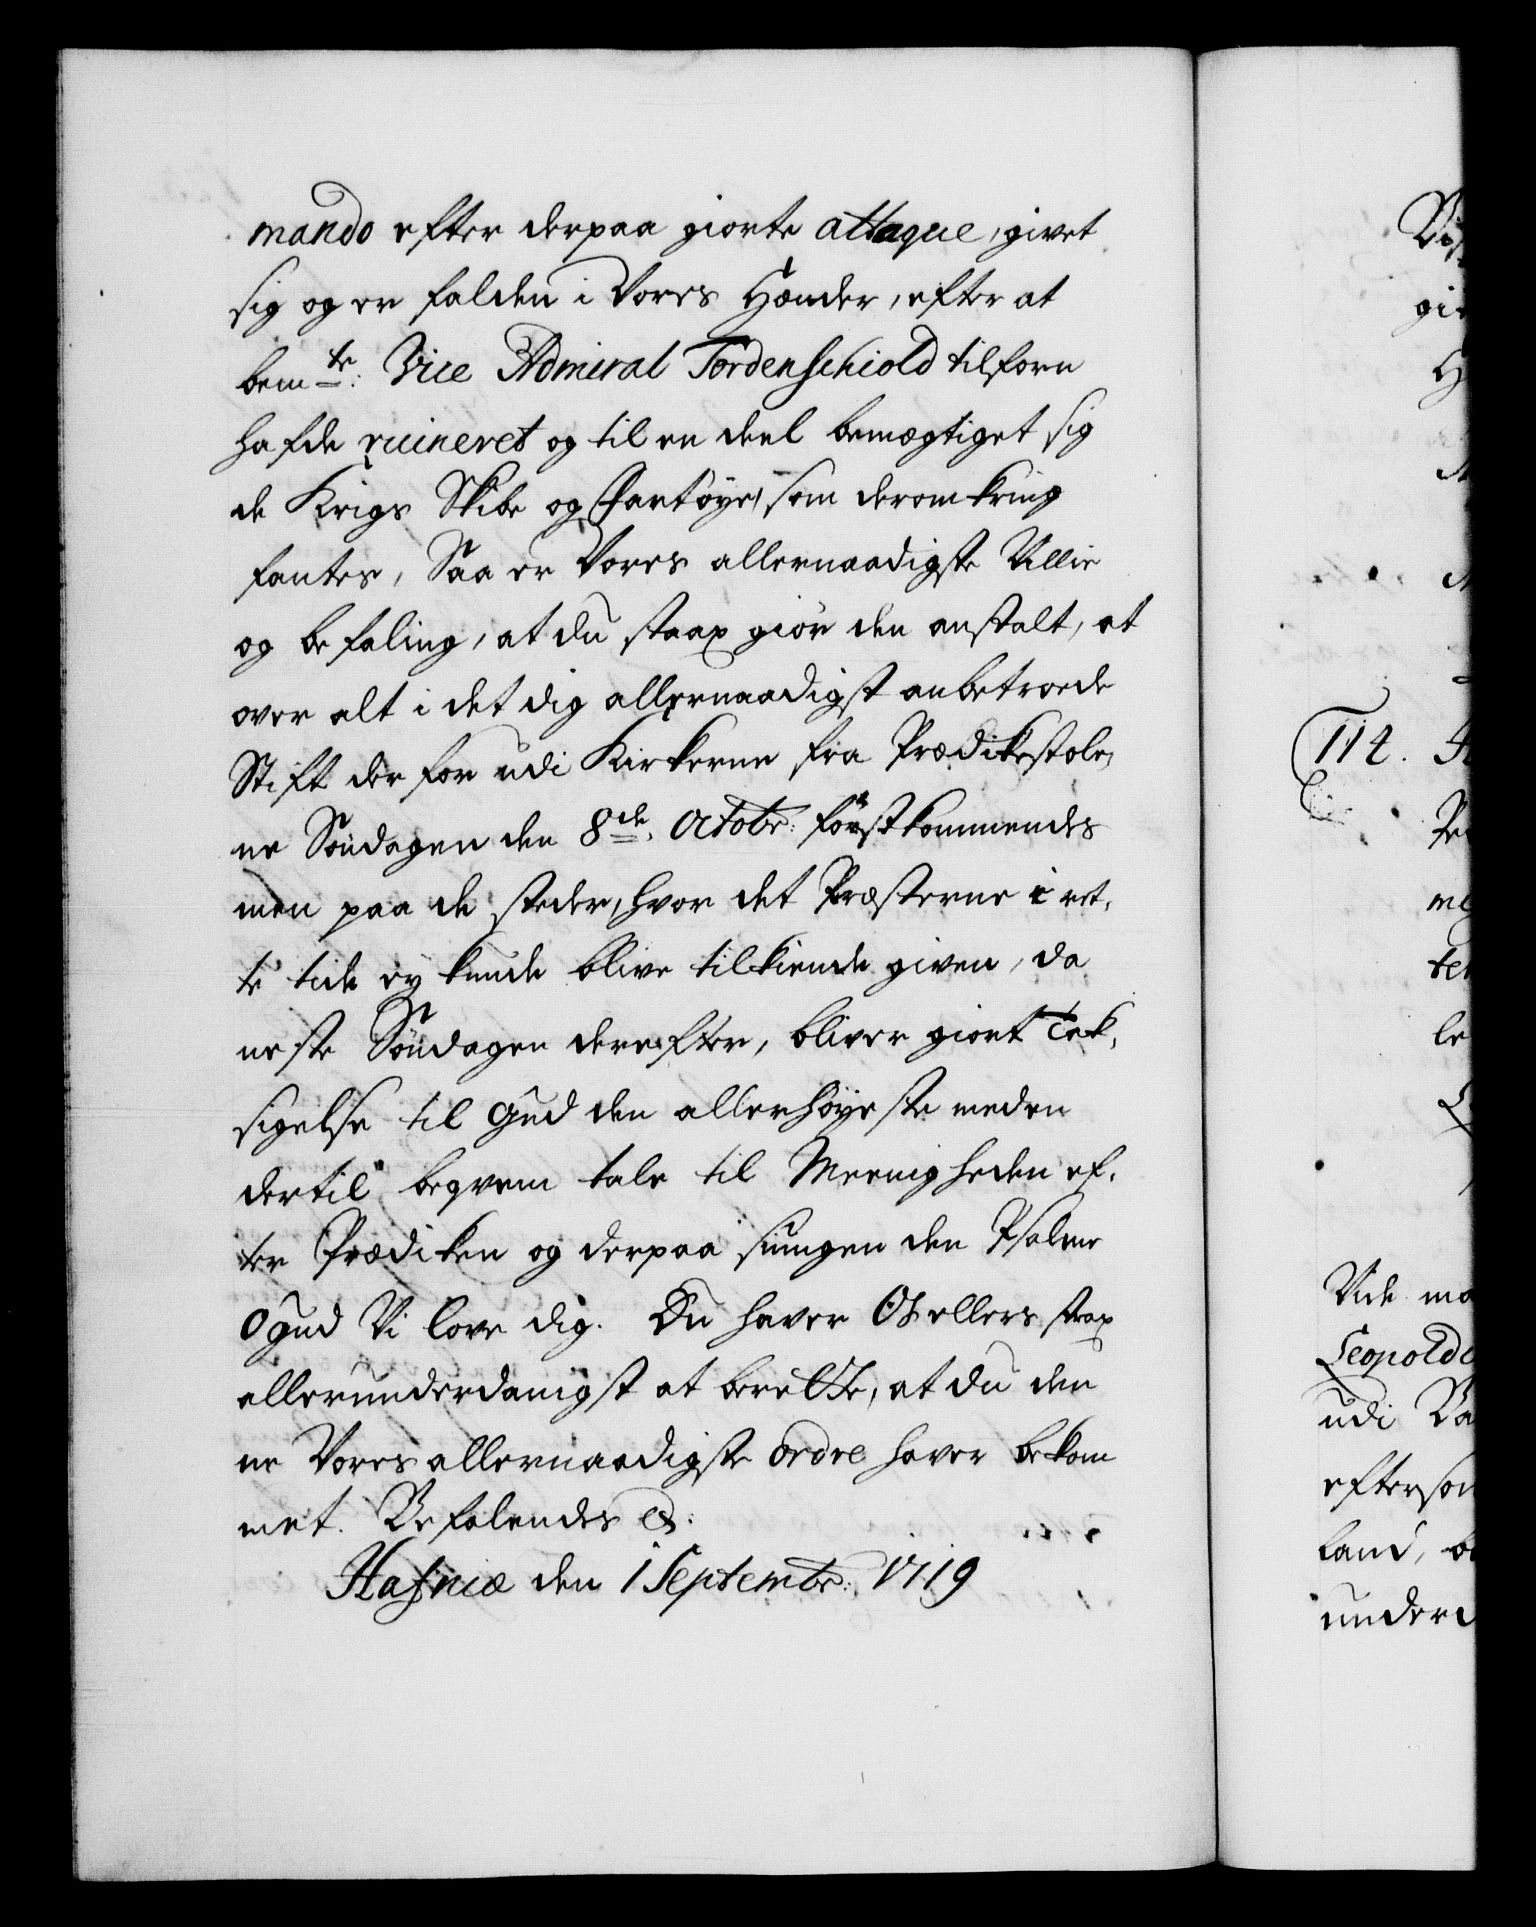 mando efter derpaa giorte attaque, givet
sig og er falden i Vores Hænder, efter at
bem:te Vice Admiral Tordenschiold tilforn
hafde ruineret og til en deel bemægtiget sig
de Krigs Skibe og Fartøyer som deromkring
fantes, Saa er Vores allernaadigste Villie
og befaling, at du strax giør den anstalt, at
over alt i det dig allernaadigst anbetroede
Stift derfor udi Kirkerne fra Prædikestole,
ne Søndagen den 8de Octobr: førstkommendes
men paa de steder, hvor det Præsterne i ret,
te tide ey kunde blive tilkiende given, da
neste Søndagen derefter, bliver giort Tak,
sigelse til Gud den allerhøyeste med en
dertil beqvem tale til Meenigheden ef,
ter Prædiken og derpaa siungen den Psalme
O Gud Vi love dig. Du haver Os ellers strax
allerunderdanigst at berette, at du den
ne Vores allernaadigste ordre haver bekom
met. Befalendes etc:
Hafniæ den 1 Septembr: 1719
gi
H
114.
me
ter
le
Vide ma
Leopold
udi Ba
efterson
land, be
underd